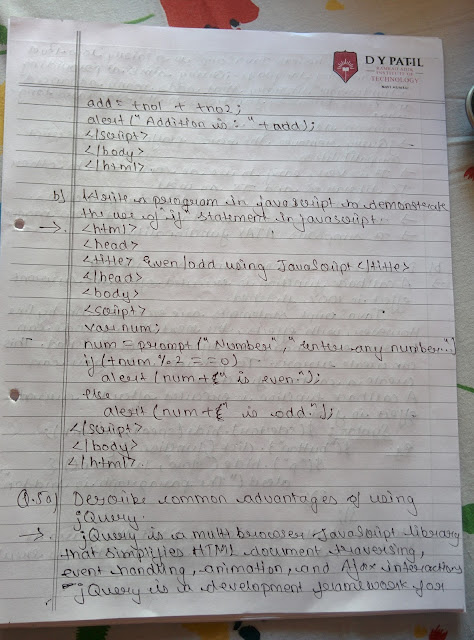 D Y PATIL
RAMRAO ADIK
INSTITUTE OF
TECHNOLOGY
NAVI MUMBAI
add = +no1 + +no2;
alert("Addition is : " + add);
</script>
</body>
</html>.
b) Write a program in javascript to demonstrate
the use of "if" statement in javascript.
→. <html>
<head>
<title> Even/odd using JavaScript </title>
</head>
<body>
<script>
var num;
num = prompt ("Number", "enter any number:")
if (+num % 2 == 0)
alert (num + " is even.");
else
alert (num + " is odd.");
</script>
</body>
</html>.
Q.5a) Describe common advantages of using
jQuery.
→. jQuery is a multi browser JavaScript library
that simplifies HTML document traversing,
event handling, animation, and Ajax interactions
- jQuery is a development framework for